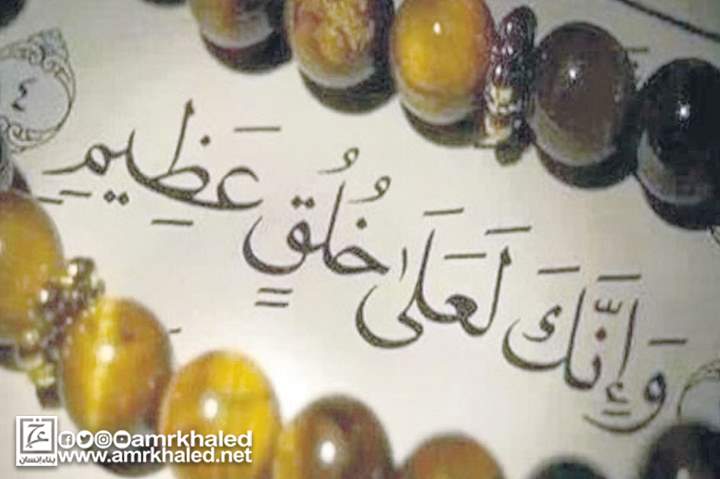 وَإِنَّكَ لَعَلَىٰ خُلُقٍ عَظِيمٍ
٤
بناء إنسان
amrkhaled
www.amrkhaled.net